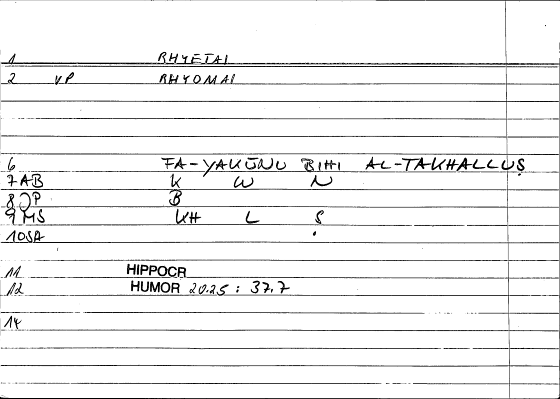 1 RHYETAI
2 VP RHYOMAI
6 FA-YAKŪNU BIHI AL-TAKHALLUṢ
7 AB K W N
8 JP B
9 MS KH L Ṣ
10 SA .
11 HIPPOCR
12 HUMOR 20.25 : 37.7
14